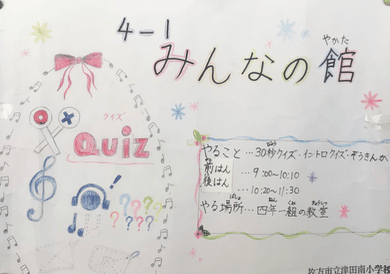 4-1
やかた
みんなの館
クイズ
QUIZ
やること…30秒クイズ・イントロクイズ・ぞうきんが
前はん …9:00~10:10
後はん …10:20~11:30
やる場所…四年一組の教室
枚方市立津田南小学校